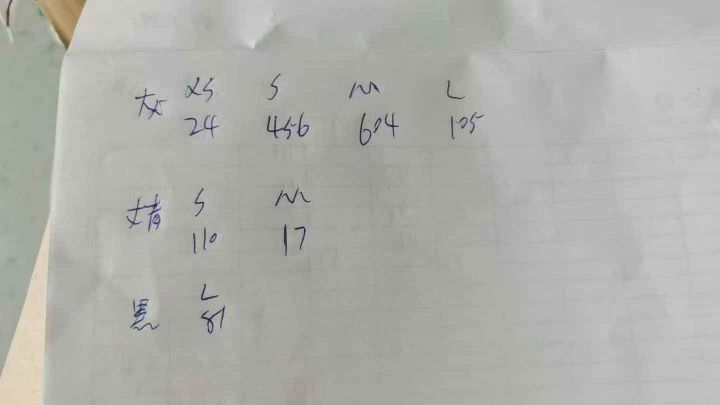 灰 XS S M L
24 456 604 105
丈青 S M
110 17
L
黑 81